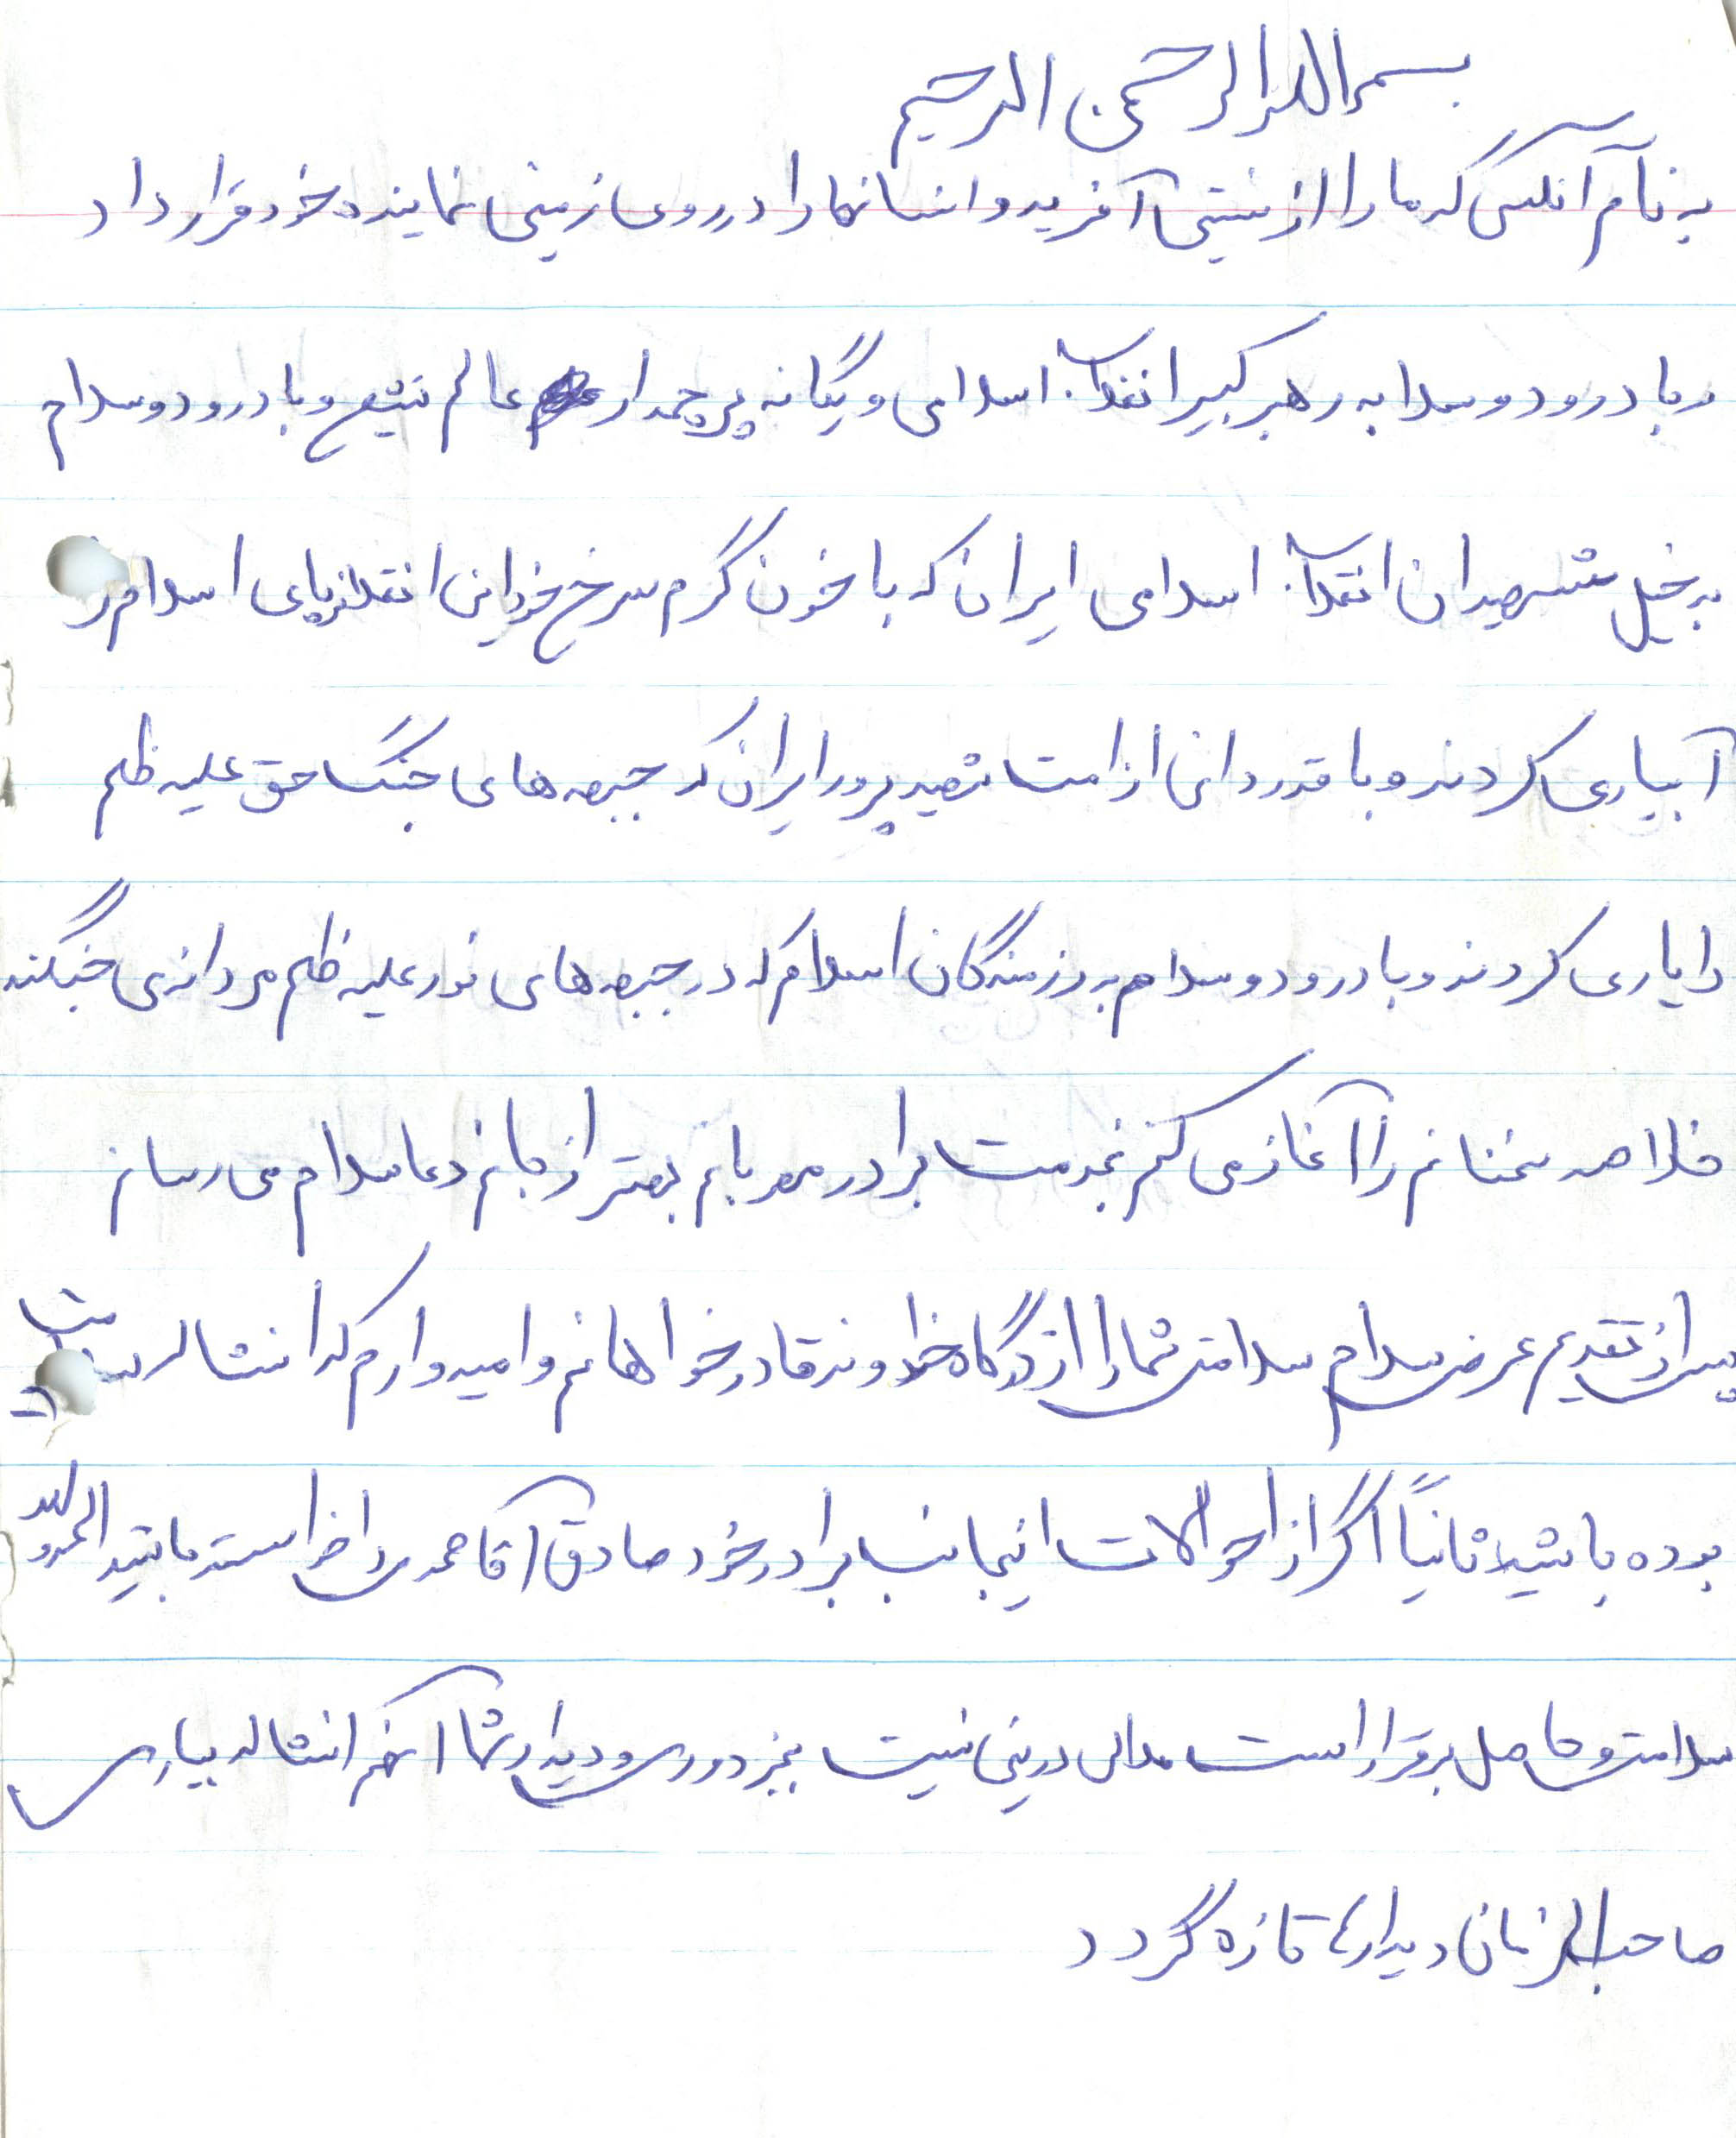 بسم الله الرحمن الرحیم
به نام آنکس که ما را از نیستی آفرید و انسانها را در روی زمین نماینده خود قرار داد
و با درود و سلام به رهبر کبیر انقلاب اسلامی و یگانه پرچمدار عالم تشیع و با درود و سلام
به خیل شهیدان انقلاب اسلامی ایران که با خون گرم سرخ خود این انقلاب پای اسلام را
آبیاری کردند و با قدردانی از امت شهید پرور ایران که جبهه های جنگ حق علیه ظلم
را یاری کردند و با درود و سلام به رزمندگان اسلام که در جبهه های نور علیه ظلم مردانه می جنگند
خلاصه سخنانم را آغاز می کنم بخدمت برادر مهربانم بهتر از جانم دعا سلام می رسانم
پس از تقدیم عرض سلام سلامتی شما را از درگاه خداوند قادر خواهانم و امیدوارم که انشاالله
بوده باشید ثانیاً اگر از احوالات اینجانب برادر خود صادق آقا محمدی را خواسته باشید الحمدلله
سلامتی حاصل برقرار است ملالی در بین نیست بجز دوری و دیدار شما آنهم انشاالله بیاری
صاحب الزمان دیدارها تازه گردد